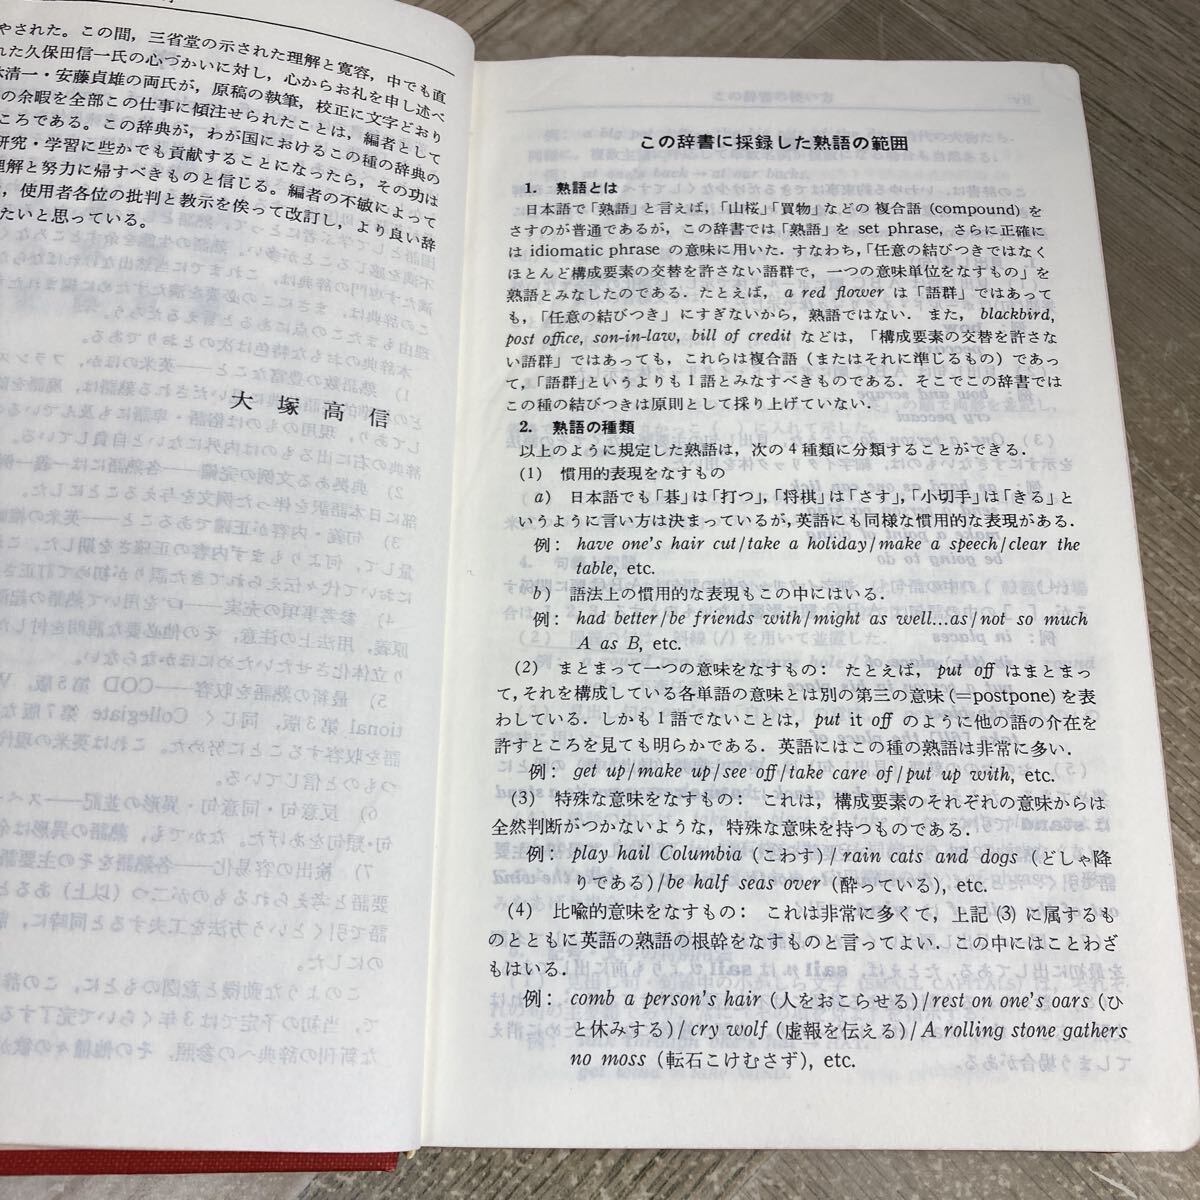 やされた。この間，三省堂の示された理解と寛容，中でも直
れた久保田信一氏の心づかいに対し，心からお礼を申し述べ
清一・安藤貞雄の両氏が，原稿の執筆，校正に文字どおり
の余暇を全部この仕事に傾注せられたことは，編者として
ころである。この辞典が，わが国におけるこの種の辞典の
研究・学習に些かでも貢献することになったら，その功は
理解と努力に帰すべきものと信じる。編者の不敏によって
，使用者各位の批判と教示を俟って改訂し，より良い辞
たいと思っている。
大塚高信
この辞書に採録した熟語の範囲
1. 熟語とは
日本語で「熟語」と言えば，「山桜」「買物」などの 複合語 (compound) を
さすのが普通であるが，この辞書では「熟語」を set phrase, さらに正確に
は idiomatic phrase の意味に用いた．すなわち，「任意の結びつきではなく
ほとんど構成要素の交替を許さない語群で，一つの意味単位をなすもの」を
熟語とみなしたのである．たとえば，a red flower は「語群」ではあって
も，「任意の結びつき」にすぎないから，熟語ではない．また，blackbird,
post office, son-in-law, bill of credit などは，「構成要素の交替を許さな
い語群」ではあっても，これらは複合語（またはそれに準じるもの）であっ
て，「語群」というよりも1語とみなすべきものである．そこでこの辞書では
この種の結びつきは原則として採り上げていない．
2. 熟語の種類
以上のように規定した熟語は，次の4種類に分類することができる．
(1) 慣用的表現をなすもの
a) 日本語でも「碁」は「打つ」，「将棋」は「さす」，「小切手」は「きる」と
いうように言い方は決まっているが，英語にも同様な慣用的な表現がある．
例：have one's hair cut/take a holiday/make a speech/clear the
table, etc.
b) 語法上の慣用的な表現もこの中にはいる．
例：had better/be friends with/might as well...as/not so much
A as B, etc.
(2) まとまって一つの意味をなすもの： たとえば，put off はまとまっ
て，それを構成している各単語の意味とは別の第三の意味(=postpone)を表
わしている．しかも1語でないことは，put it off のように他の語の介在を
許すところを見ても明らかである．英語にはこの種の熟語は非常に多い．
例：get up/make up/see off/take care of/put up with, etc.
(3) 特殊な意味をなすもの： これは，構成要素のそれぞれの意味からは
全然判断がつかないような，特殊な意味を持つものである．
例：play hail Columbia（こわす）/rain cats and dogs（どしゃ降
りである）/be half seas over（酔っている）, etc.
(4) 比喩的意味をなすもの： これは非常に多くて，上記 (3) に属するも
のとともに英語の熟語の根幹をなすものと言ってよい．この中にはことわざ
もはいる．
例：comb a person's hair（人をおこらせる）/rest on one's oars（ひ
と休みする）/cry wolf（虚報を伝える）/A rolling stone gathers
no moss（転石こけむさず）, etc.